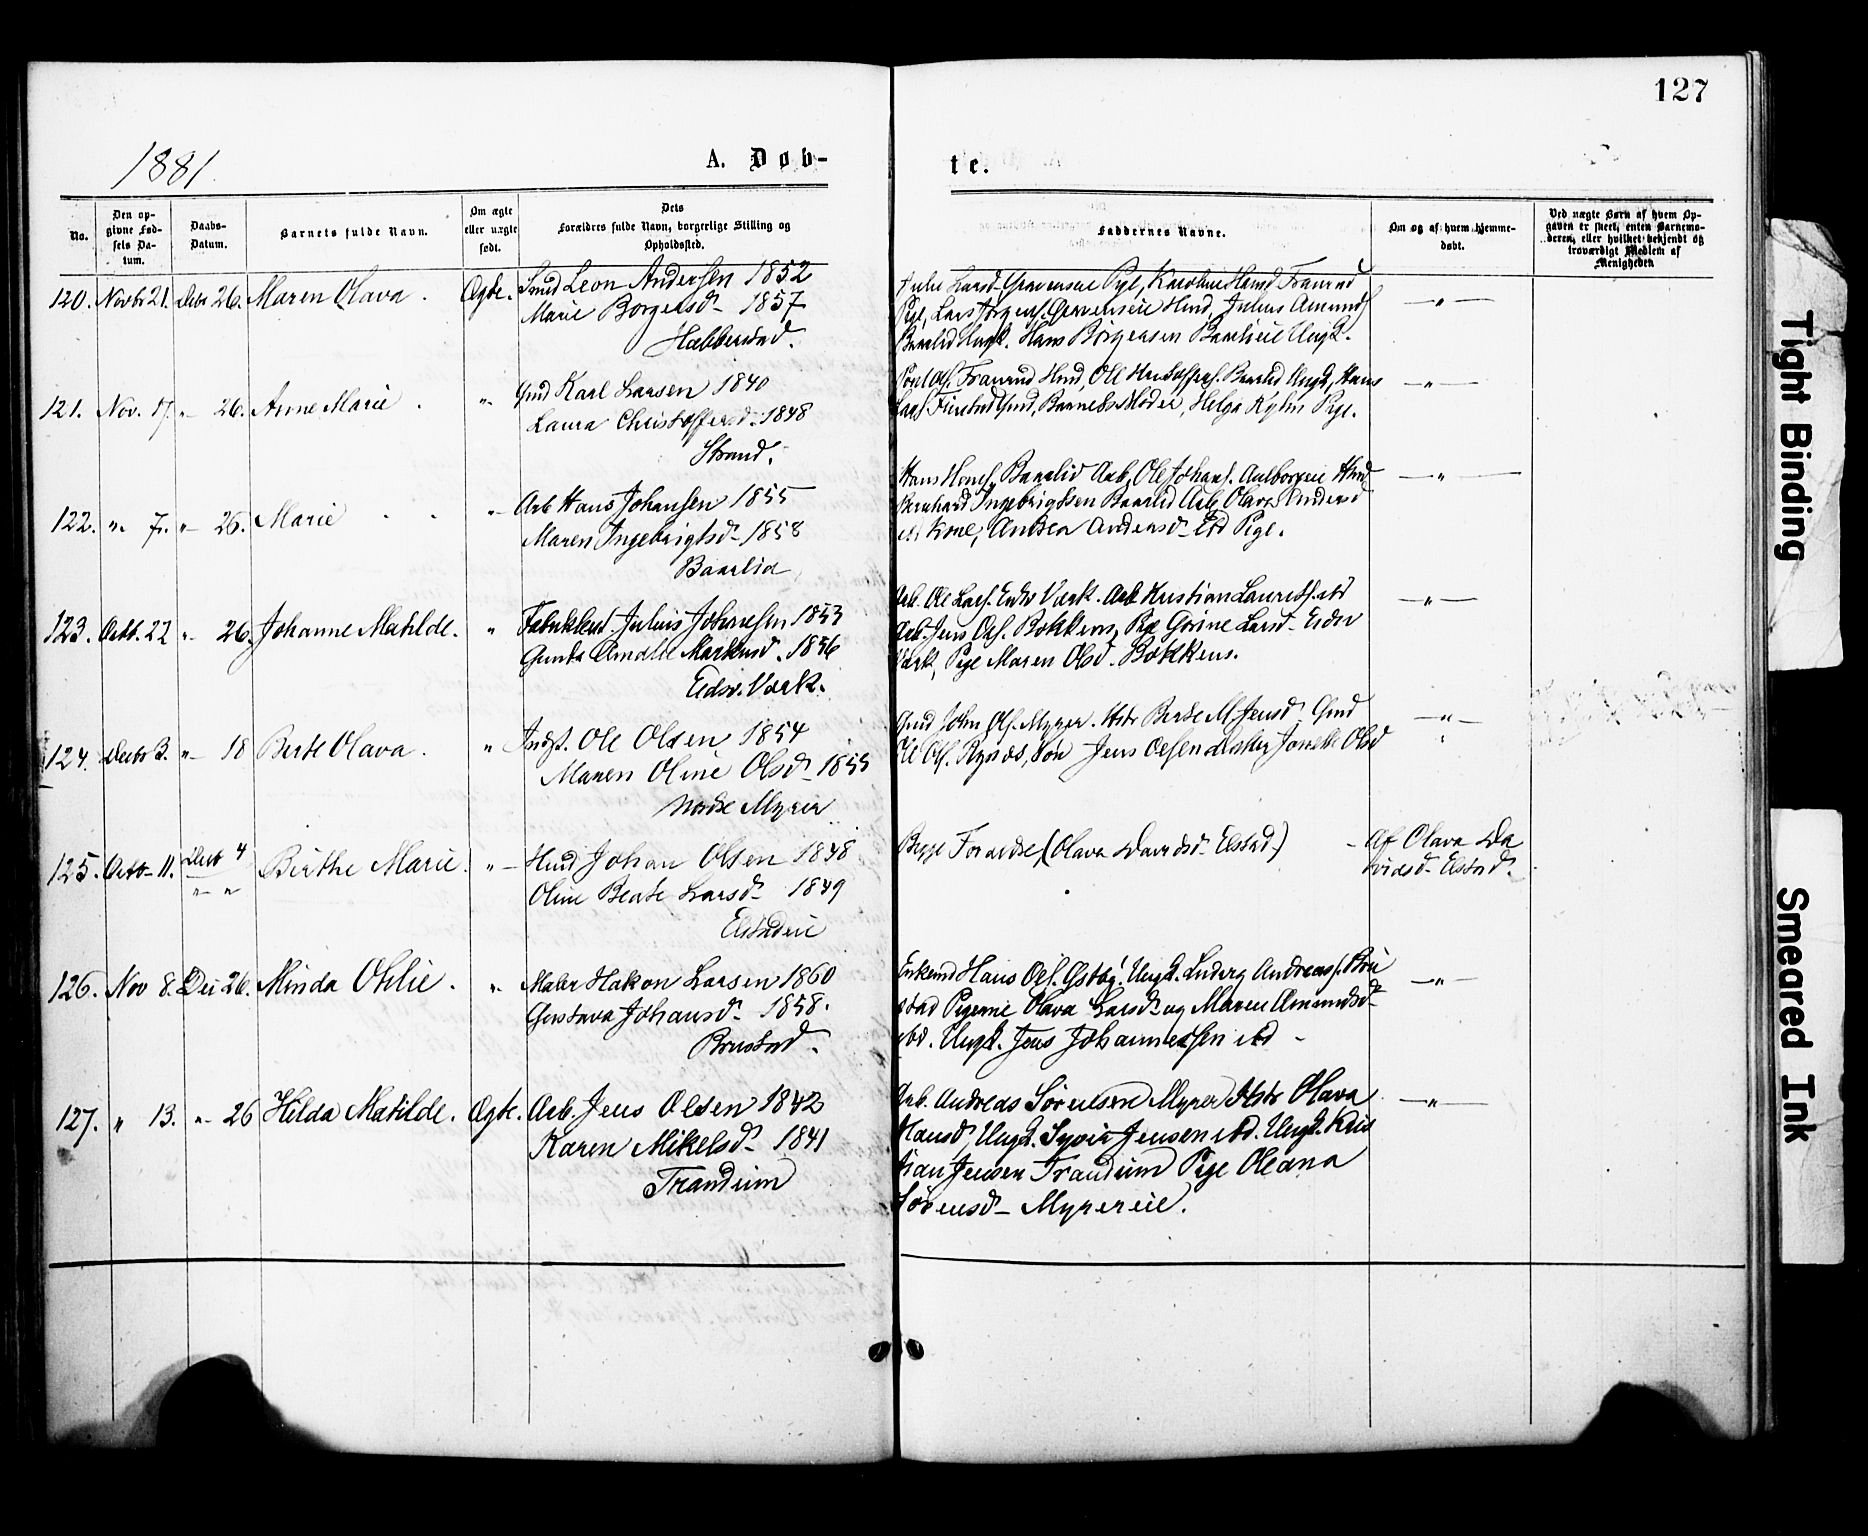 127
1881.
A. Døb-
te.
No.
Den op-
givne Fød-
sels Da-
tum.
Daabs-
Datum.
Barnets fulde Navn.
Om ægte
eller uægte
født.
Dets
Forældres fulde Navn, borgerlige Stilling og
Opholdssted.
Faddernes Navne.
Om og af hvem hjemme-
døbt.
Ved uægte Børn af hvem Op-
gaven er skeet, enten Barnemo-
deren, eller hvilket bekjendt og
troværdigt Medlem af
Menigheden
120. Novbr 21. Decbr 26. Maren Olava. Ægte. Leon Andersen 1852
Marie Borgersd- 1857
Pige, Karoline Hansd
Pige, Lars Jørgens. Hmd, Julius Amunds
Ungk. Hans Börgersen Ungk.
121. Nov. 17. "- 26. Anne Marie "- Gmd Karl Larsen 1840
Laura Christoffersd- 1848
Strand.
Hmd, Ole Christoffers. Ungk, Hans
Gmd, Barnets Moder, Helga Pige.
122. "- 7. "- 26. Marie "- Arb Hans Johansen 1855
Maren Ingebrigtsd- 1858
Baarlid
Hans Baarlid Arb, Ole Johans. Hmd
Bernhard Ingebrigtsen Baarlid Arb, Olava Andersd
Kone, Andrea Andersd- Pige.
123. Octb. 22 "- 26. Johanne Matilde. " Julius Johnsen 1853
Amalie Markusd. 1856
Eidsv. Værk.
Arb. Ole Lars. Eidsv Værk. Arb Kristian Laurits. ibd
Arb. Jens Ols. Bøkkens, Pge Gorine Larsd- Eidsv
Værk, Pge Maren Olsd. Bøkkens.
124. Decbr 3. "- 18 Berte Olava. " Indst. Ole Olsen 1854
Maren Oline Olsd- 1855
Nordre Myrer
Gmd John Ols. Myrer. Hstr Berte M. Jensd. Gmd
Ole Ols. Søn Jens Olsen Datter Olsd
125. Octb- 11. Decb 4 Birthe Marie. "- Hmd Johan Olsen 1848
Oline Beate Larsd- 1849
Elstadeie
Begge Forældre, (Olava Davidsd- Elstad.)
- Af Olava Da
vidsd- Elstad.
126. Nov 8. Dec 26. Minda Otilie. "- Maler Hakon Larsen 1860
Gustava Johansd- 1858.
Brustad.
Enkemd Hans Ols. Østby. Ungk. Ludvig Andreas. Bru
stad Pigerne Olava Larsd- og Maren Amundsd-
ibd. Ungk. Jens Johannessen ibd -
127. " 13. "- 26 Hilda Matilde. Ægte. Arb. Jens Olsen 1842
Karen Mikelsd- 1841
Trandum
Arb. Andreas Sörensen Myrer Hstr Olava
Hansd, Ungk. Jensen ibd. Ungk. Kris
tian Jensen Trandum Pige Oleana
Sörensd- Myrereie.
Tight Binding
Smeared Ink